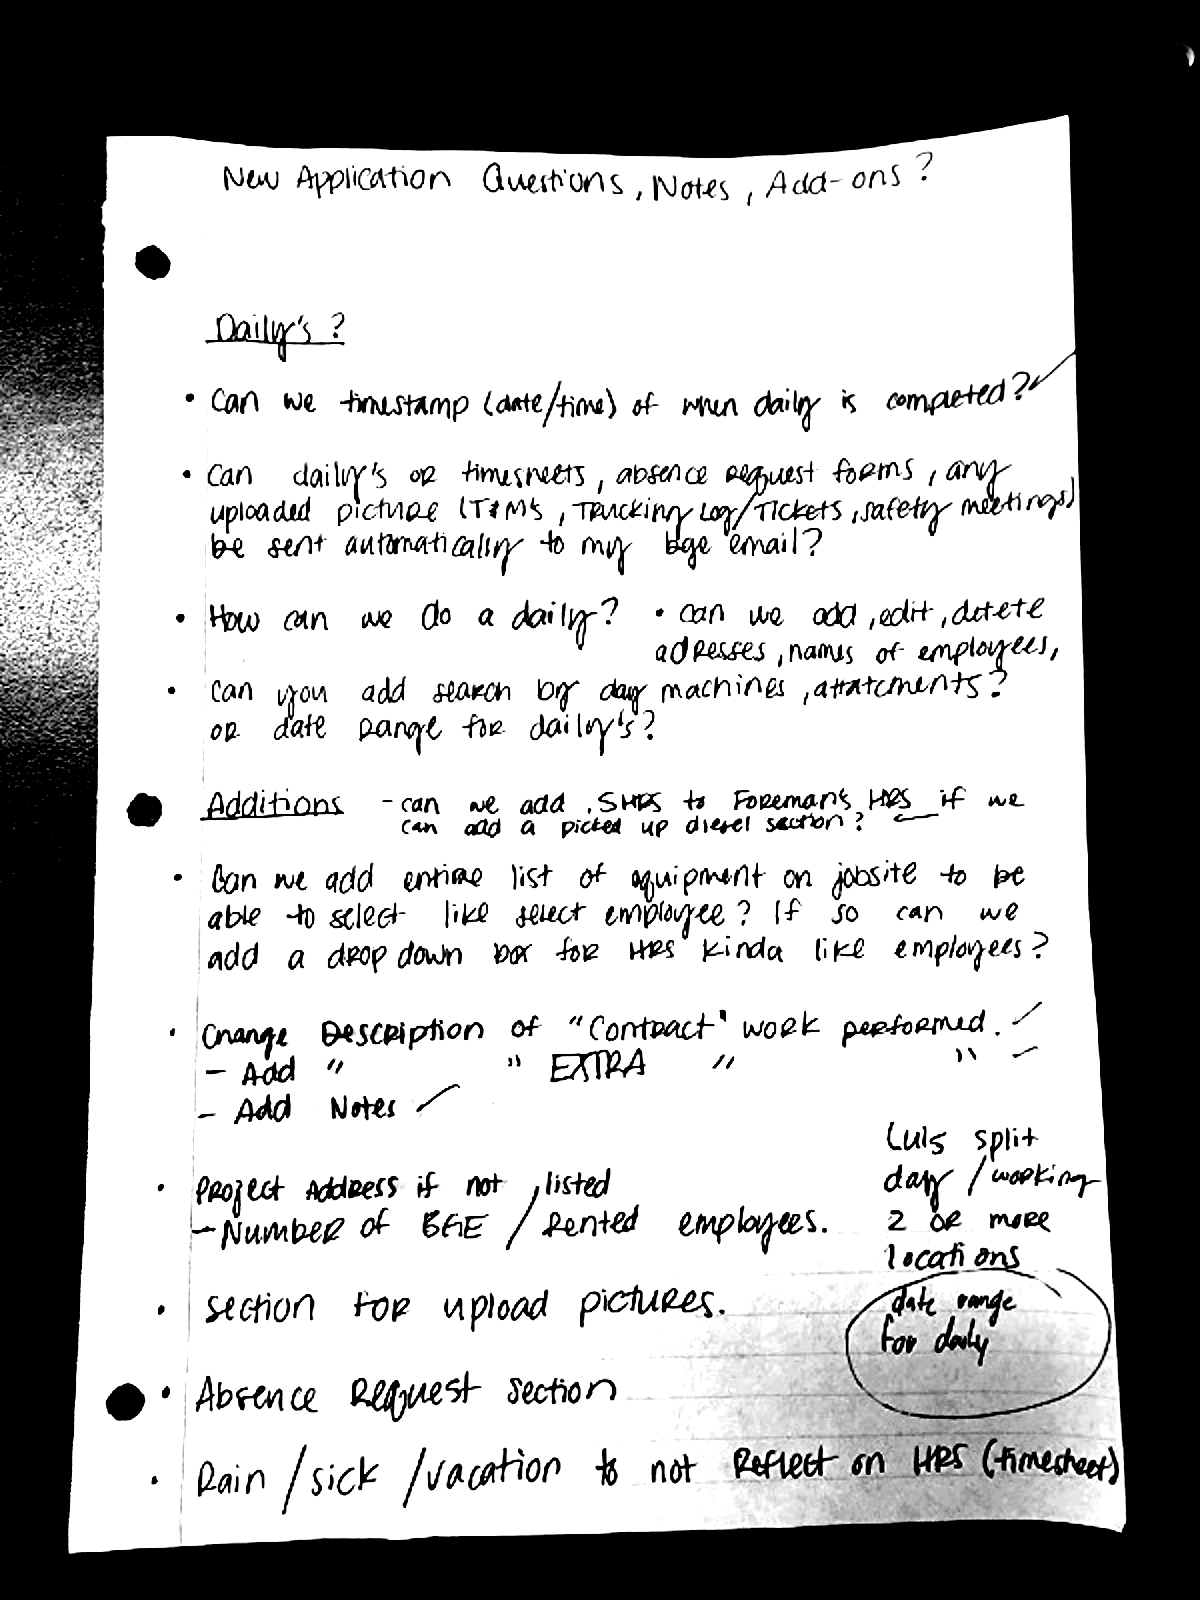 New Application Questions, Notes, Add-ons?
Daily's?
• Can we timestamp (date/time) of when daily is completed? ✓
• Can daily's or timesheets, absence request forms, any
uploaded picture (T&M's, Trucking Log/Tickets, safety meetings)
be sent automatically to my bge email?
• How can we do a daily?
• can we add, edit, delete
addresses, names of employees,
machines, attatcments?
• Can you add search by day
or date range for daily's?
Additions - can we add .5HRS to Foreman's HRS if we
can add a picked up diesel section?
• Can we add entire list of equipment on jobsite to be
able to select like select employee? If so can we
add a drop down box for HRS kinda like employees?
• Change Description of "Contract" work performed. ✓
- Add " " EXTRA " " ✓
- Add Notes ✓
• Project Address if not listed
- Number of BGE / Rented employees.
Luis split
day / working
2 or more
locations
date range
for daily
• section for upload pictures.
• Absence Request section
• Rain / sick / vacation to not Reflect on HRS (timesheet)